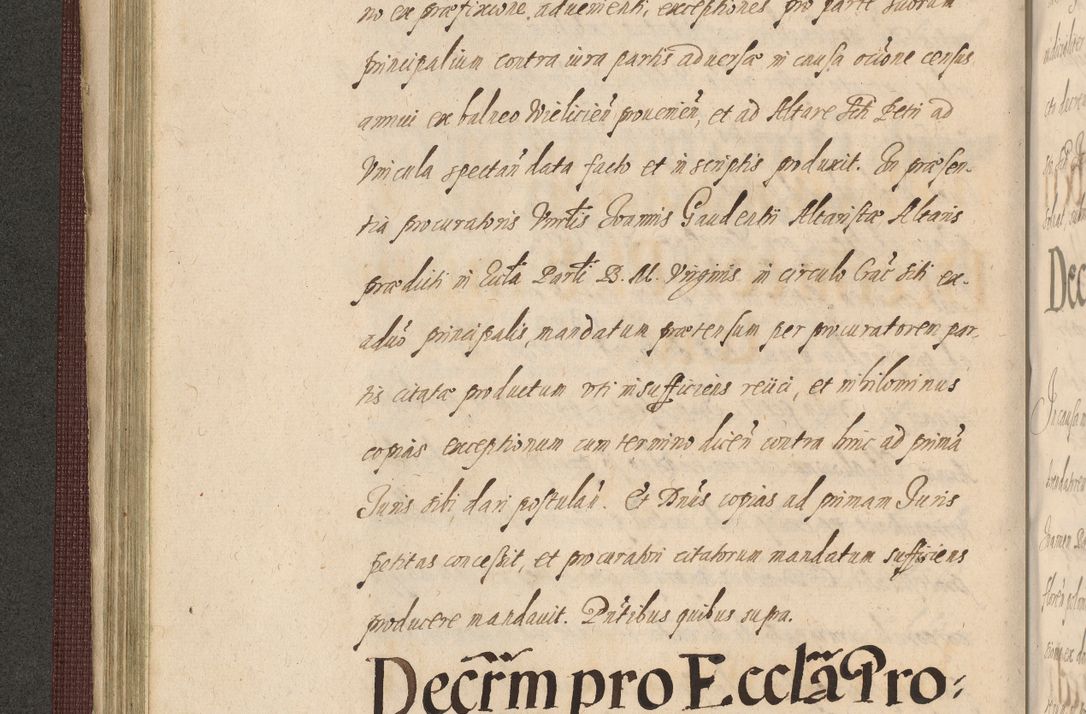 no ex præfixione advenienti, exceptiones pro parte suorum
principalium contra iura partis adversæ in causa őone census
annui ex balneo Wielicieñ provenieñ, et ad Altare Sti Petri ad
Vincula spectañ data facto et in scriptis produxit. In præsen-
tia procuratoris Vnrlis Ioannis Gaudentii Altaristæ Altaris
prædicti in Eccla Parli B. M. Virginis in circulo Crac sibi ex-
aduo principalis, mandatum prætensum per procuratorem par-
tis citatæ productum uti insufficiens reiici, et nihilominus
copias exceptionum cum termino diceñ contra hinc ad primã
Iuris sibi dari postulañ. Et Dñus copias ad primam Iuris
petitas concessit, et procuratori citatorum mandatum sufficiens
producere mandavit. Pñtibus quibus supra.
Decrm pro Eccla Pro:
Dec